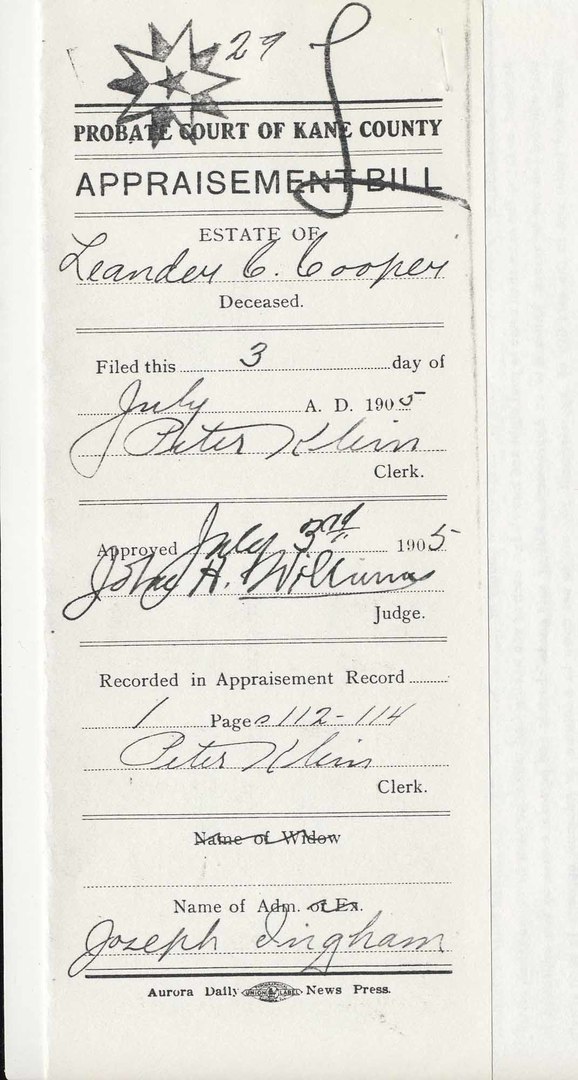 29
PROBATE COURT OF KANE COUNTY
APPRAISEMENT BILL
ESTATE OF
Leander C. Cooper
Deceased.
Filed this 3 day of
July A. D. 1905
Peter Klein
Clerk.
Approved July 3rd 1905
John H. Williams
Judge.
Recorded in Appraisement Record
1 Pages 112-114
Peter Klein
Clerk.
Name of Widow
Name of Adm. or Ex.
Joseph Ingham
Aurora Daily UNION LABEL News Press.